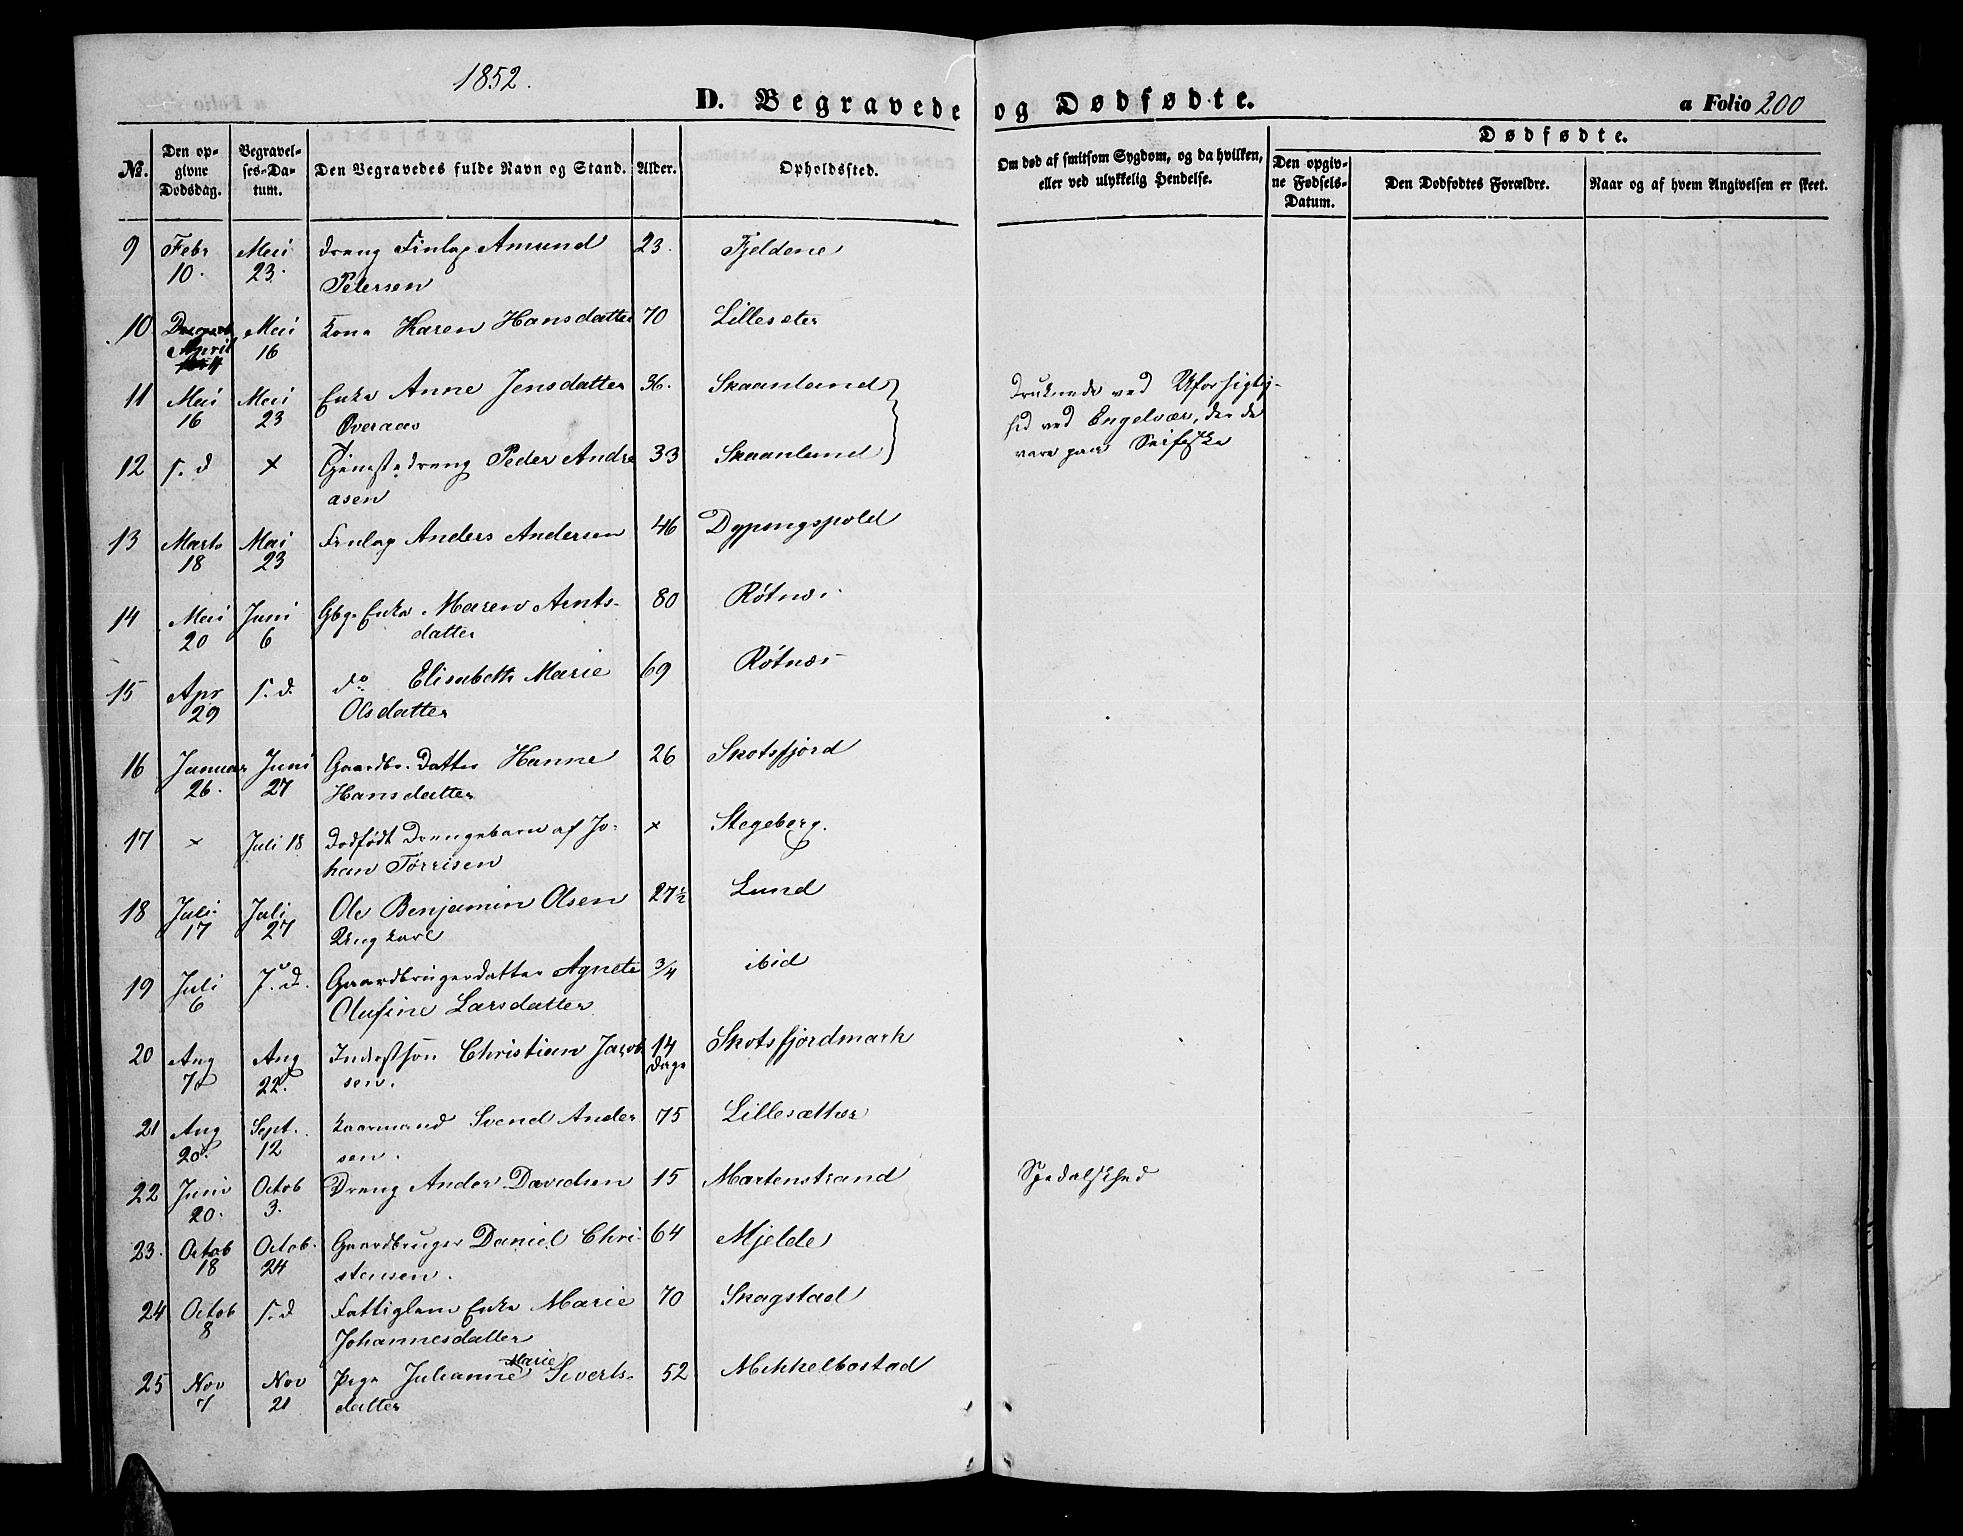 1852.
D. Begravede og Dødfødte.
a Folio 200
No. Den opgivne Dödsdag. Begravelses-Datum. Den Begravedes fulde Navn og Stand. Alder. Opholdssted. Om død af smitsom Sygdom, og da hvilken, eller ved ulykkelig Hendelse. Dødfødte. Den opgivne Fødsels-Datum. Den Dødfødtes Forældre. Naar og af hvem Angivelsen er skeet.
9 Febr Mai Dreng Finlap Amund 23. Fjeldene
10. 23. Petersen
10 April Mai Kone Karen Hansdatter 70 Lillesæter
16
11 Mai Mai Enke Anne Jensdatter 36. Skaanland Druknede ved Uforsigtig-
16 23 Overaas hed ved Engelvær, der de
12 s. d × Tjenestedreng Peder Andre 33 Skaanland vare paa Seifiske
asen
13 Marts Mai Finlap Anders Andersen 46 Dypingspold
18 23
14 Mai Juni Gbg. Enke Maren Arnts- 80 Røtnæs
20 6 datter
15 Apr s. d. do Elisabeth Marie 69 Røtnæs
29 Olsdatter
16 Januar Juni Gaardbr. Datter Hanne 26 Skotsfjord
26. 27 Hansdatter
17 × Juli 18 Dødfödt Drengebarn af Jo- × Stegeberg.
han Tørrisen
18 Juli Juli Ole Benjamin Olsen 27½ Lund
17 27 Ungkarl
19 Juli s. d. Gaardbrugerdatter Agnete 3/4 ibid
6 Olufine Larsdatter
20 Aug Aug Inderstsön Christian Jacob 14 Skotsfjordmark
7 22. sen. Dage
21 Aug Sept. Kaarmand Svend Ander 75 Lillesætter
20. 12 sen.
22 Juni Octob Dreng Ander Davidsen 15 Martenstrand Spedalskhed
20. 3.
23. Octob Octob. Gaardbruger Daniel Chri- 64 Mjelde
18 24 stensen.
24 Octob s. d Fattiglem Enke Marie 70 Skagstad
8 Johannesdatter
25 Nov Nov Pige Julianne Marie Siverts- 52 Mikkelbostad
7 21 datter